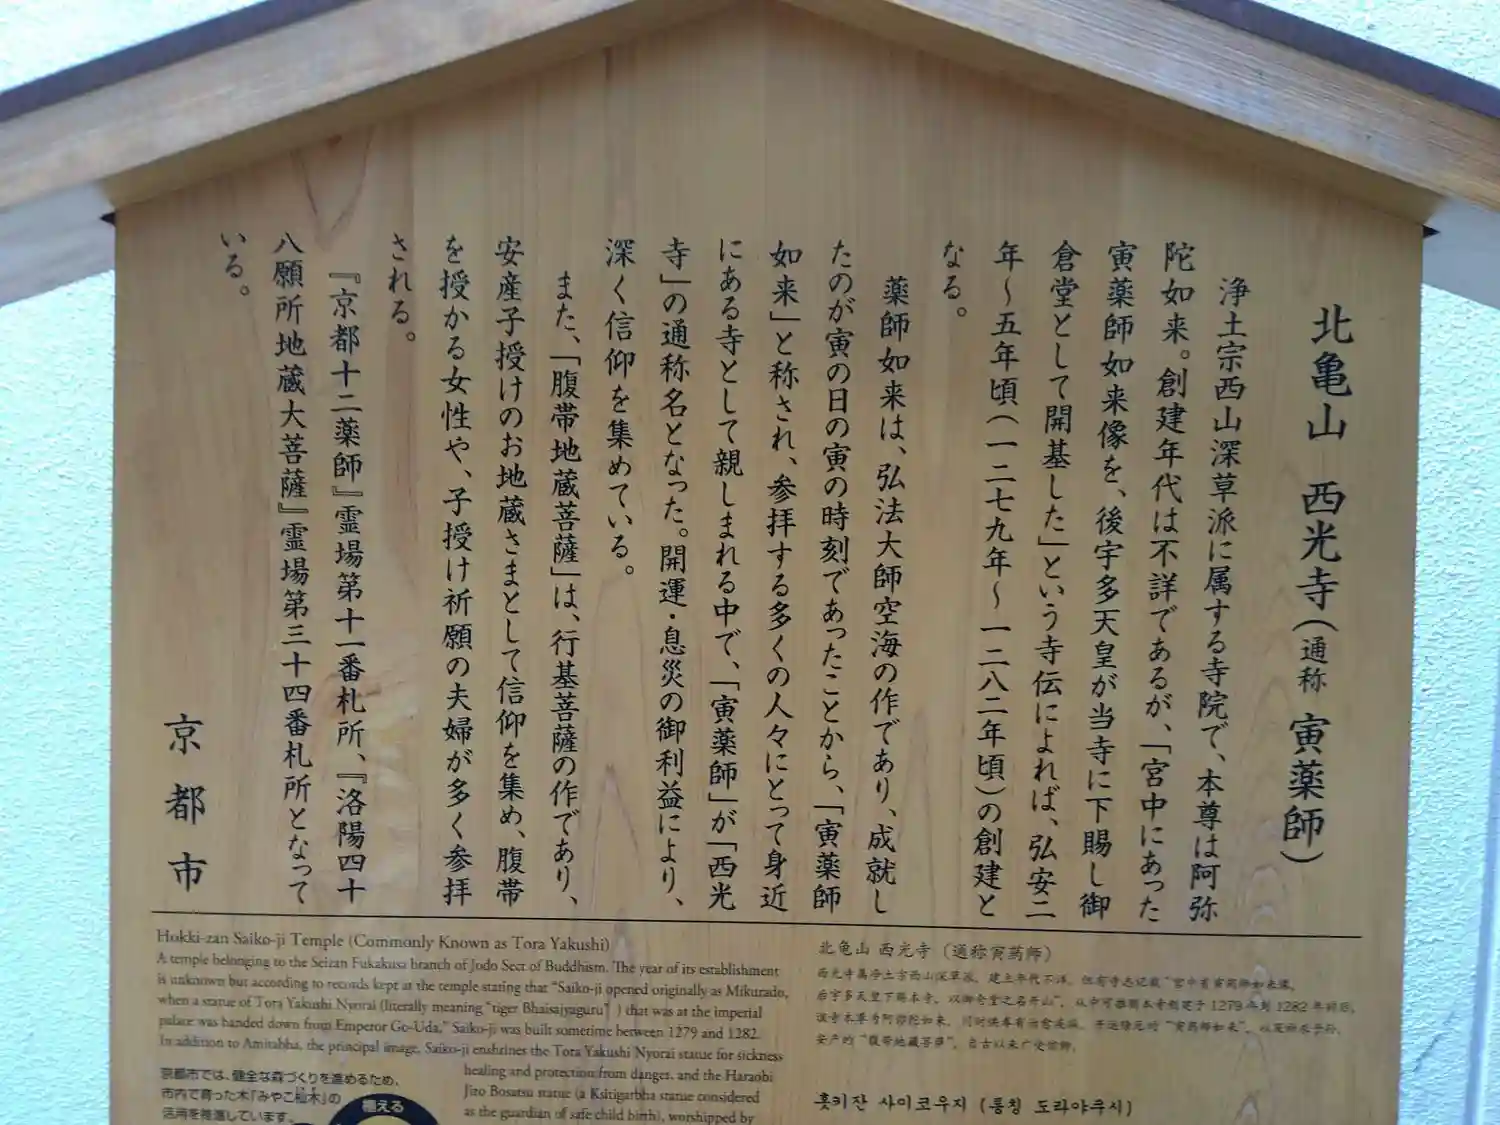 北亀山 西光寺(通称 寅薬師)
浄土宗西山深草派に属する寺院で、本尊は阿弥
陀如来。創建年代は不詳であるが、「宮中にあった
寅薬師如来像を、後宇多天皇が当寺に下賜し御
倉堂として開基した」という寺伝によれば、弘安二
年～五年頃(一二七九年～一二八二年頃)の創建と
なる。
薬師如来は、弘法大師空海の作であり、成就し
たのが寅の日の寅の時刻であったことから、「寅薬師
如来」と称され、参拝する多くの人々にとって身近
にある寺として親しまれる中で、「寅薬師」が「西光
寺」の通称名となった。開運・息災の御利益により、
深く信仰を集めている。
また、「腹帯地蔵菩薩」は、行基菩薩の作であり、
安産子授けのお地蔵さまとして信仰を集め、腹帯
を授かる女性や、子授け祈願の夫婦が多く参拝
される。
『京都十二薬師』霊場第十一番札所、『洛陽四十
八願所地蔵大菩薩』霊場第三十四番札所となって
いる。
京都市
Hokki-zan Saiko-ji Temple (Commonly Known as Tora Yakushi)
A temple belonging to the Seizan Fukakusa branch of Jodo Sect of Buddhism. The year of its establishment
is unknown but according to records kept at the temple stating that "Saiko-ji opened originally as Mikurado,
when a statue of Tora Yakushi Nyorai (literally meaning "tiger Bhaisajyaguru") that was at the imperial
palace was handed down from Emperor Go-Uda," Saiko-ji was built sometime between 1279 and 1282.
In addition to Amitabha, the principal image, Saiko-ji enshrines the Tora Yakushi Nyorai statue for sickness
healing and protection from danger, and the Haraobi
Jizo Bosatsu statue (a Ksitigarbha statue considered
as the guardian of safe child birth), worshipped by
京都市では、健全な森づくりを進めるため、
市内で育った木「みやこ杣木」の
活用を推進しています。
植える
北龟山 西光寺（通称寅药师）
西光寺属净土宗西山深草派。建立年代不详，但有寺志记载"宫中有寅药师如来像，
后宇多天皇下赐本寺，以御仓堂之名开山"，从中可推测本寺创建于 1279 年到 1282 年前后。
安产的"腹带地藏菩萨"，自古以来广受信仰。
홋키잔 사이코우지 (통칭 도라야쿠시)